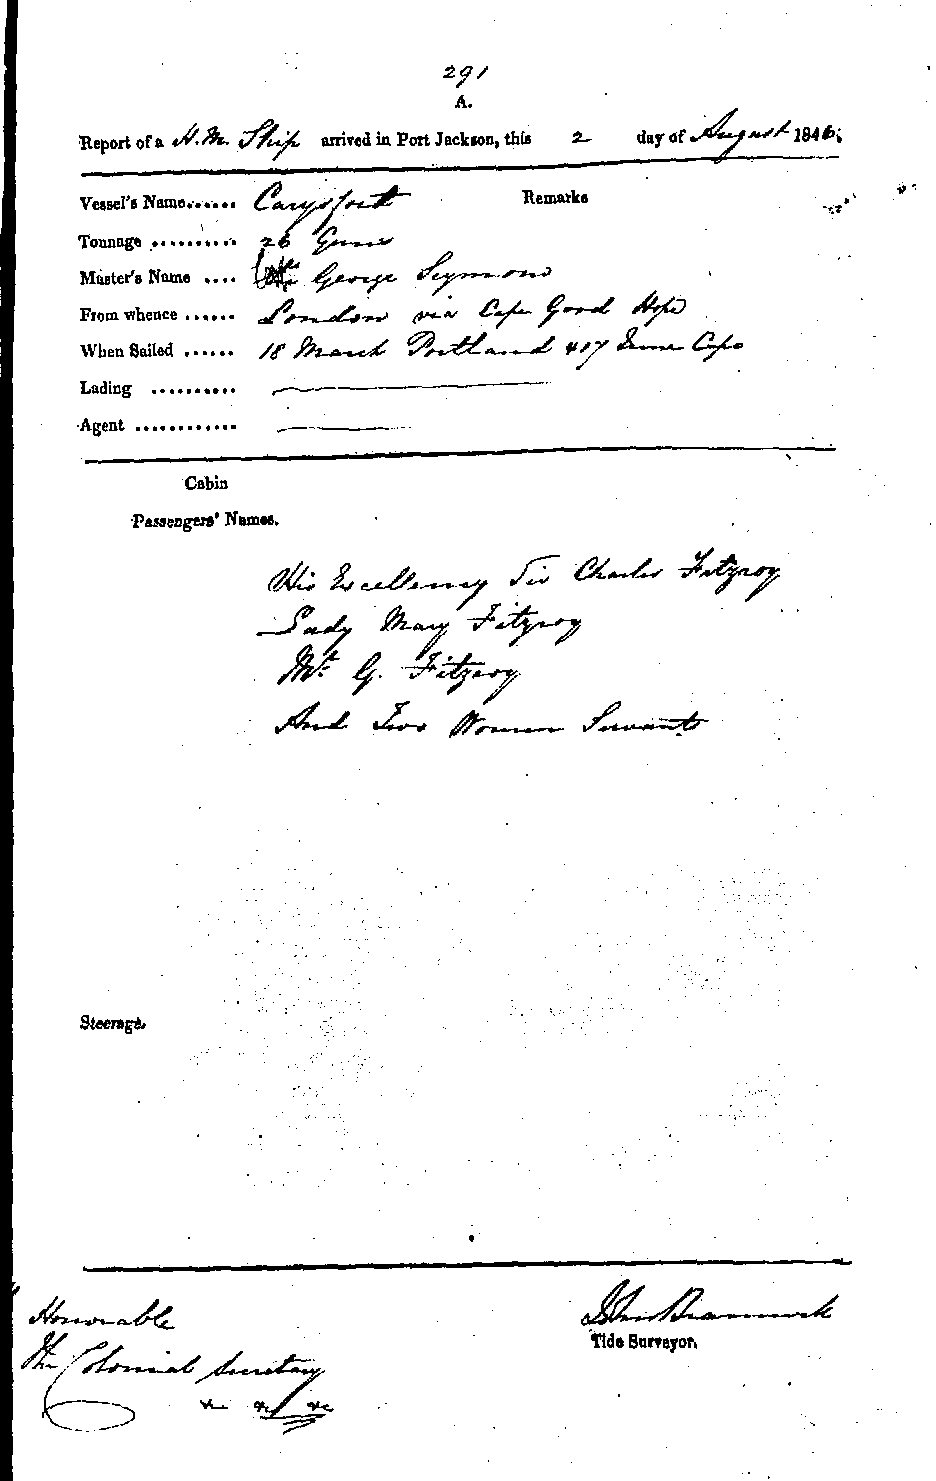 291
A.
Report of a H.M. Ship arrived in Port Jackson, this 2 day of August 1846.
Vessel's Name...... Carysfort Remarks
Tonnage .......... 26 Guns
Master's Name .... George Seymour
From whence ...... London via Cape Good Hope
When Sailed ...... 18 March Portland & 17 June Cape
Lading ..........
Agent ............
Cabin
Passengers' Names.
His Excellency Sir Charles Fitzroy
Lady Mary Fitzroy
Mr. G. Fitzroy
And Two Women Servants
Steerage.
Honorable
The Colonial Secretary
&c &c &c
John
Tide Surveyor.